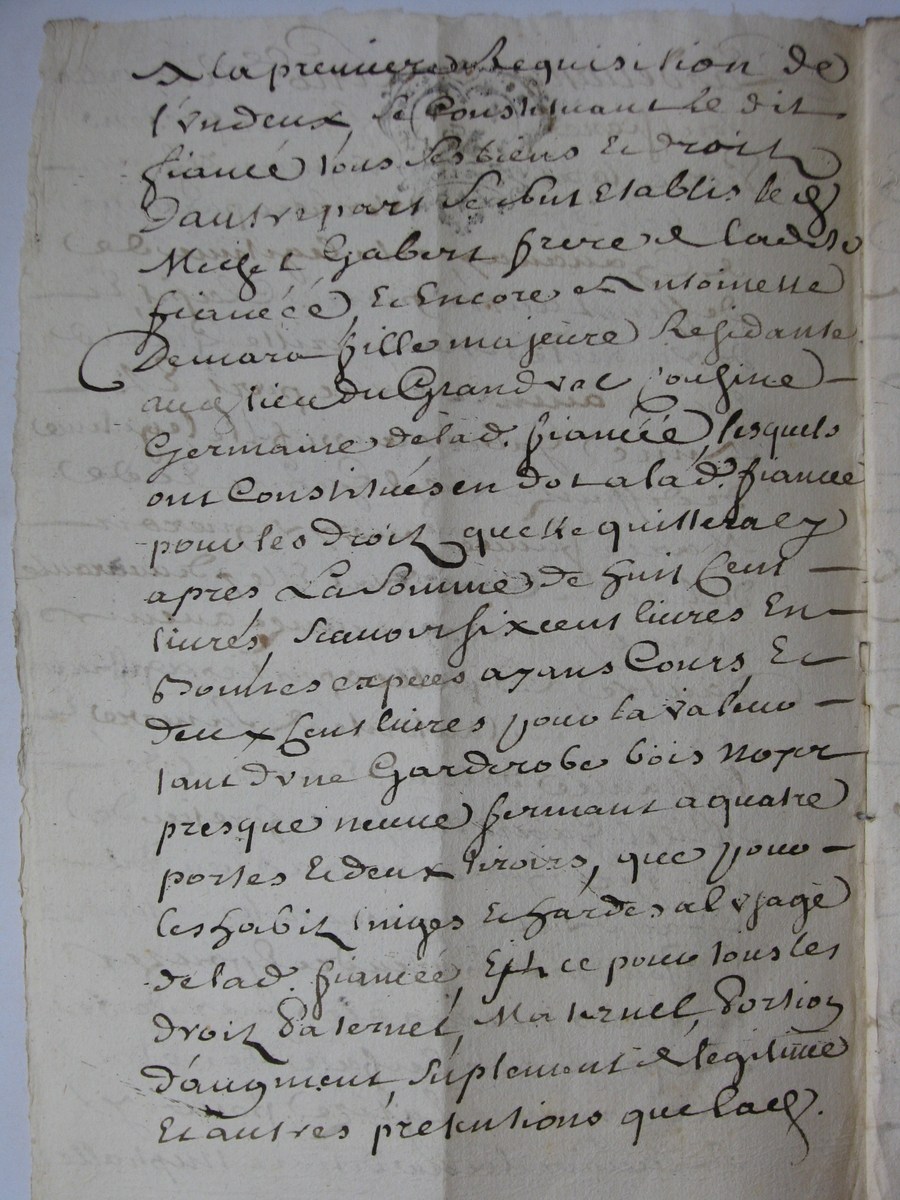 A la premiere Requisition de
l'un deux, se Constituant le dit
fiancé tous ses biens Et droitz
Dautre part se sont Etablis le d.
Michel Gabert frere de ladite
fiancéé, Et Encore Antoinette
Demara fille majeure Residante
aud. lieu du Grandval Cousine
Germaine delad. fiancéé, lesquels
ont Constitués en dot a lad. fiancéé
pour les droitz quelle quittera cy
apres La Somme de huit Cent
livres, scauoir six cent livres En
bonnes expeces ayans Cours, Et
deux Cent livres pour la valeur
tant dune Garderobe bois noyer
presque neuve fermant a quatre
portes Et deux tiroirs, que pour
les habitz linges Et hardes a l'usage
delad. fiancéé, Et ce pour tous les
droitz Paternel, Maternel, Portion
d'augment, suplement de legitime
Et autres prétentions que lad.